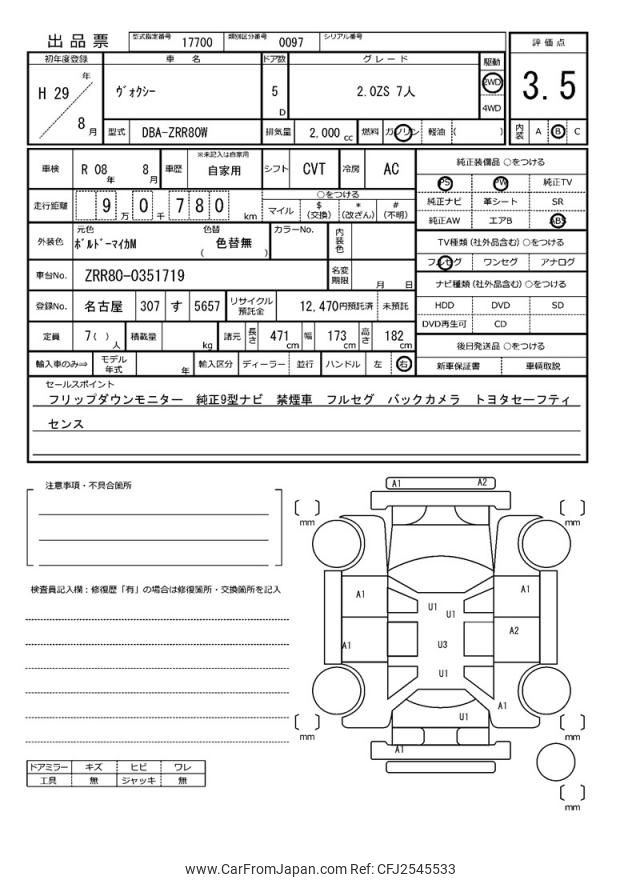 出品票 型式指定番号 17700 類別区分番号 0097 シリアル番号
初年度登録 車名 ドア数 グレード 駆動 評価点
H 29 年 8 月 ヴォクシー 5 D 2.0ZS 7人 2WD 4WD 3.5
型式 DBA-ZRR80W 排気量 2,000 cc 燃料 ガソリン 軽油 ( ) 内装 A B C
車検 R 08 年 8 月 車歴 ※未記入は自家用 自家用 シフト CVT 冷房 AC 純正装備品 ○をつける
PS PW 純正TV
走行距離 9 万 0 千 780 km ○をつける 純正ナビ 革シート SR
マイル $ (交換) * (改ざん) # (不明) 純正AW エアB ABS
外装色 元色 ボルドーマイカM 色替 色替無 ( ) カラーNo. 内装色 TV種類 (社外品含む) ○をつける
フルセグ ワンセグ アナログ
車台No. ZRR80-0351719 名変期限 月 日 ナビ種類 (社外品含む) ○をつける
登録No. 名古屋 307 す 5657 リサイクル預託金 12,470円預託済 未預託 HDD DVD SD
DVD再生可 CD
定員 7( ) 人 積載量 kg 諸元 長さ 471 cm 幅 173 cm 高さ 182 cm 後日発送品 ○をつける
輸入車のみ⇒ モデル年式 年 輸入区分 ディーラー 並行 ハンドル 左 右 新車保証書 車輌取説
セールスポイント
フリップダウンモニター 純正9型ナビ 禁煙車 フルセグ バックカメラ トヨタセーフティ
センス
注意事項・不具合箇所
検査員記入欄：修復歴「有」の場合は修復箇所・交換箇所を記入
A1 A2
mm mm
A1 A1
U1 U1
A2
A1 U3
U1
A1
U1
mm mm
A1
mm
ドアミラー キズ ヒビ ワレ
工具 無 ジャッキ 無
www.CarFromJapan.com Ref: CFJ2545533